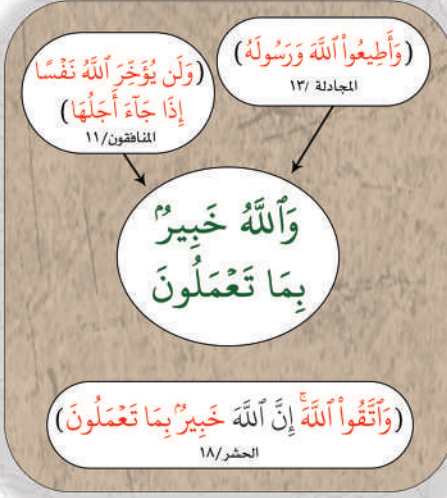 (وَأَطِيعُواْ ٱللَّهَ وَرَسُولَهُ)
المجادلة /١٣
(وَلَن يُؤَخِّرَ ٱللَّهُ نَفْسًا
إِذَا جَآءَ أَجَلُهَا)
المنافقون/١١
وَٱللَّهُ خَبِيرُۢ
بِمَا تَعْمَلُونَ
(وَٱتَّقُواْ ٱللَّهَۚ إِنَّ ٱللَّهَ خَبِيرُۢ بِمَا تَعْمَلُونَ)
الحشر/١٨